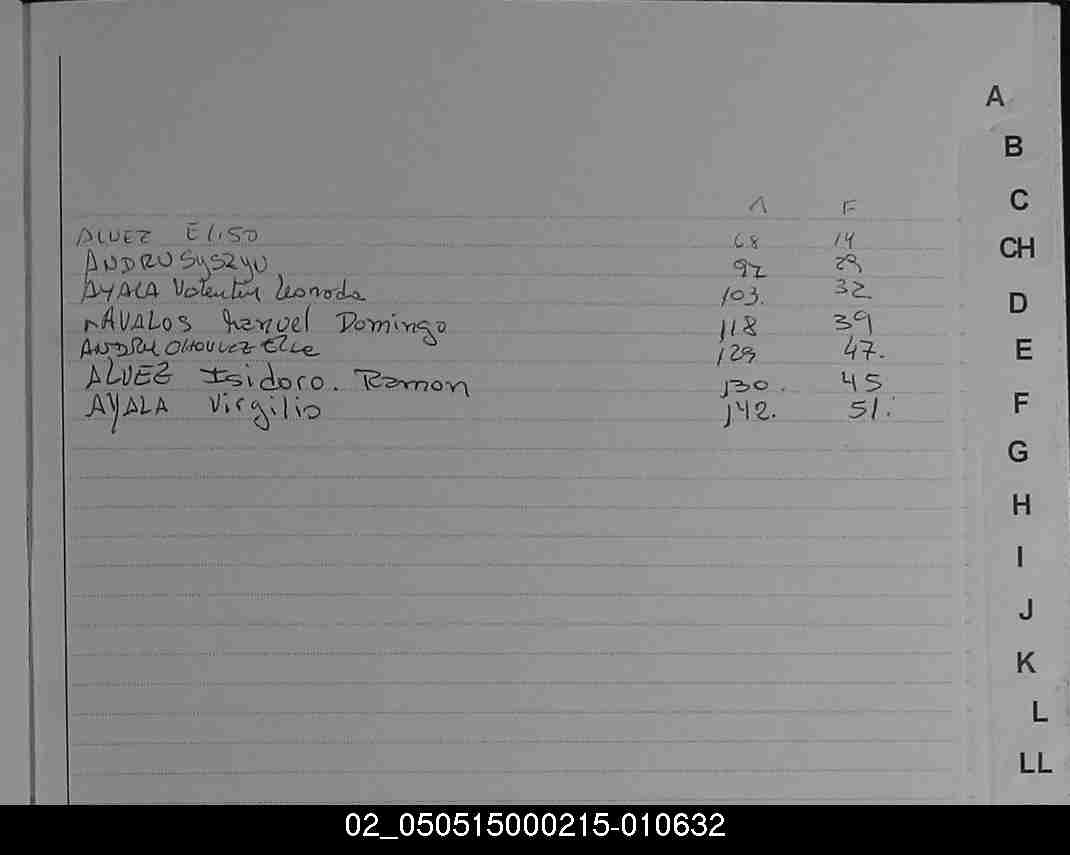 A F
ALVEZ Eliso 68 14
ANDRUSYSZYU 92 29
AYALA Valentin Leonoda 103. 32
AVALOS Manuel Domingo 118 39
129 47.
ALVEZ Isidoro. Ramon 130. 45
AYALA Virgilio 142. 51.
A
B
C
CH
D
E
F
G
H
I
J
K
L
LL
02_050515000215-010632